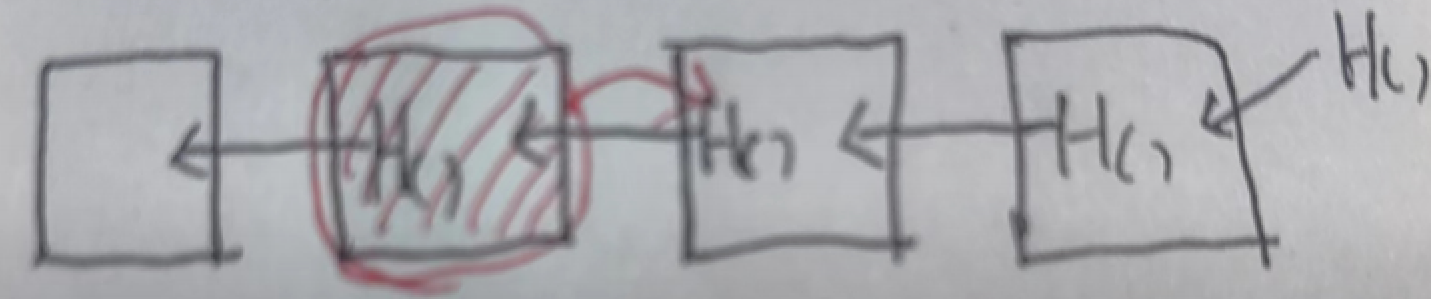 H() H() H() H()